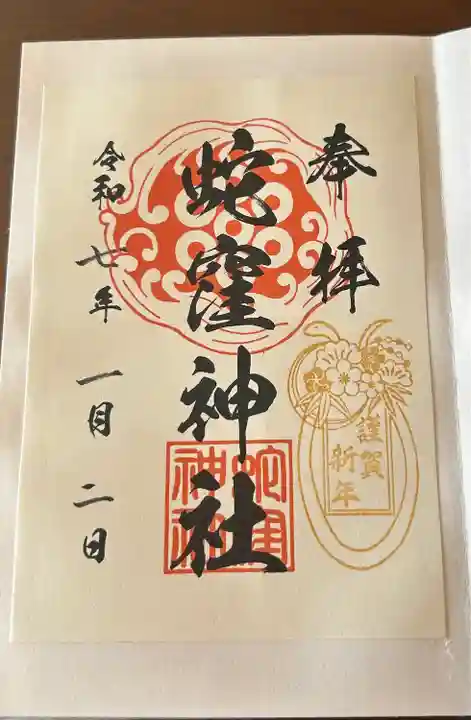 奉拝
蛇窪神社
令和七年一月二日
謹賀
新年
蛇窪
神社